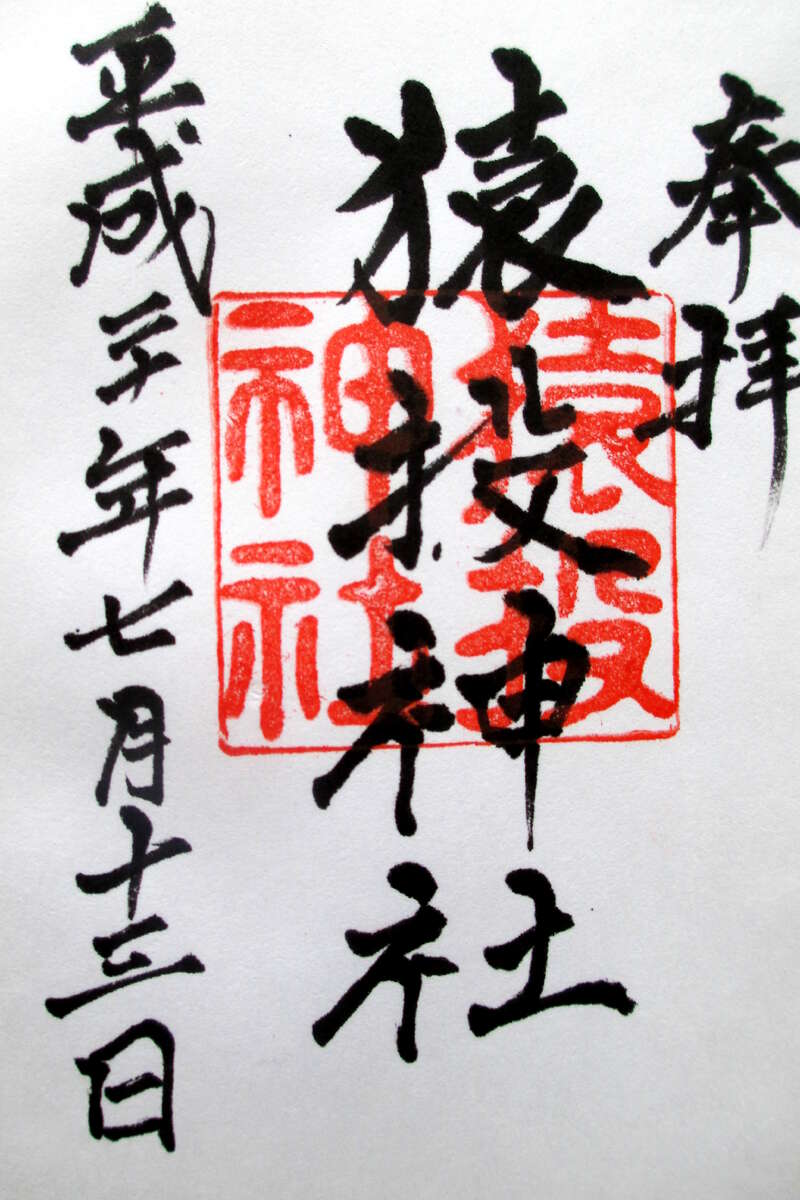 奉拝
猿投神社
平成二十年七月十三日
猿投
神社